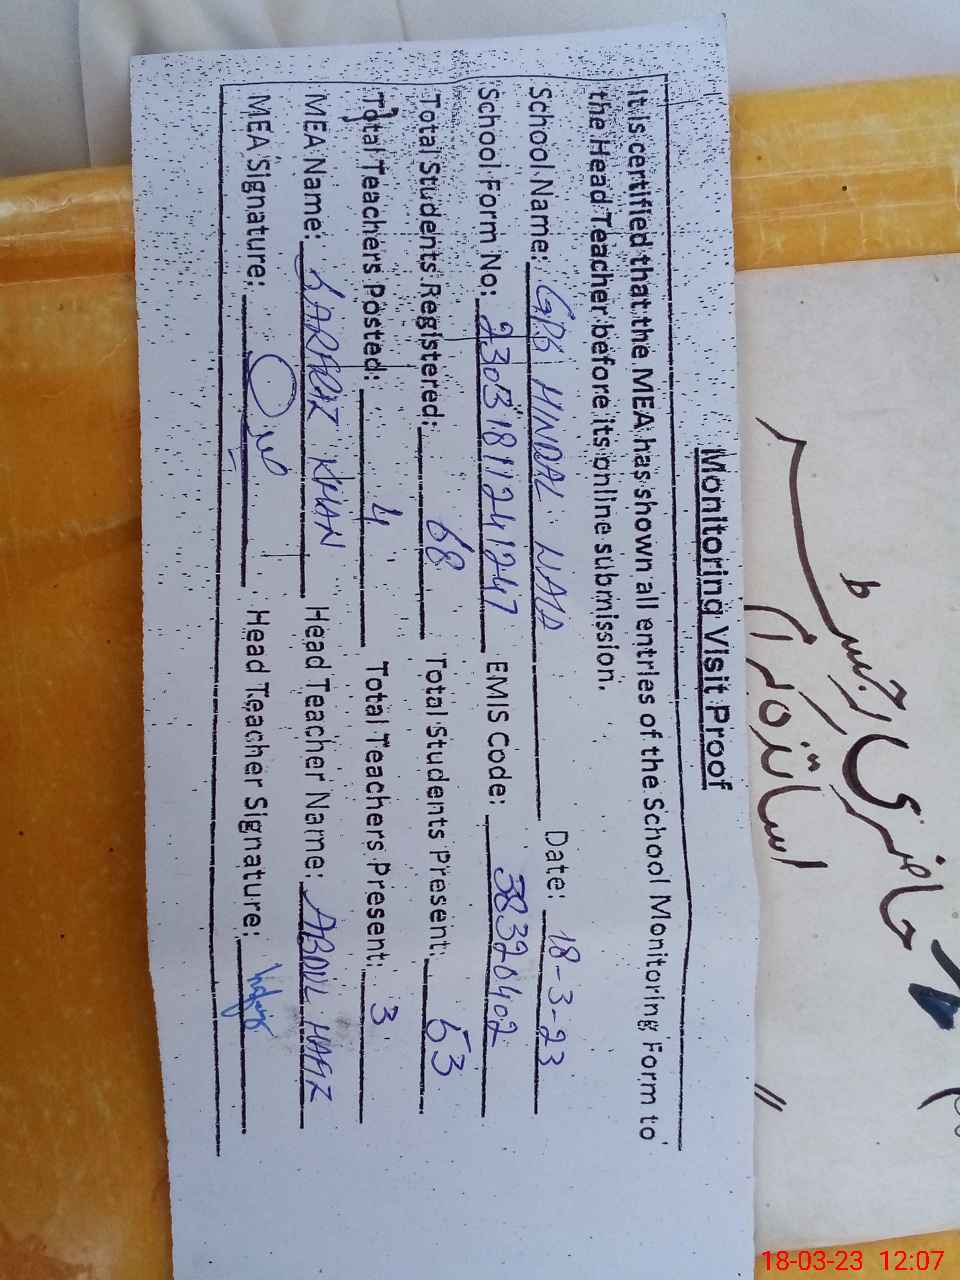 Monitoring Visit Proof
It is certified that the MEA has shown all entries of the School Monitoring Form to
the Head Teacher before its online submission.
School Name: GPS HINDAL NALA Date: 18-3-23
School Form No: 23031811241247 EMIS Code: 38320402
Total Students Registered: 68 Total Students Present: 53
Total Teachers Posted: 4 Total Teachers Present: 3
MEA Name: KHAN Head Teacher Name: ABDUL
MEA Signature: Head Teacher Signature:
حاضری رجسٹر
اساتذہ کرام
18-03-23 12:07